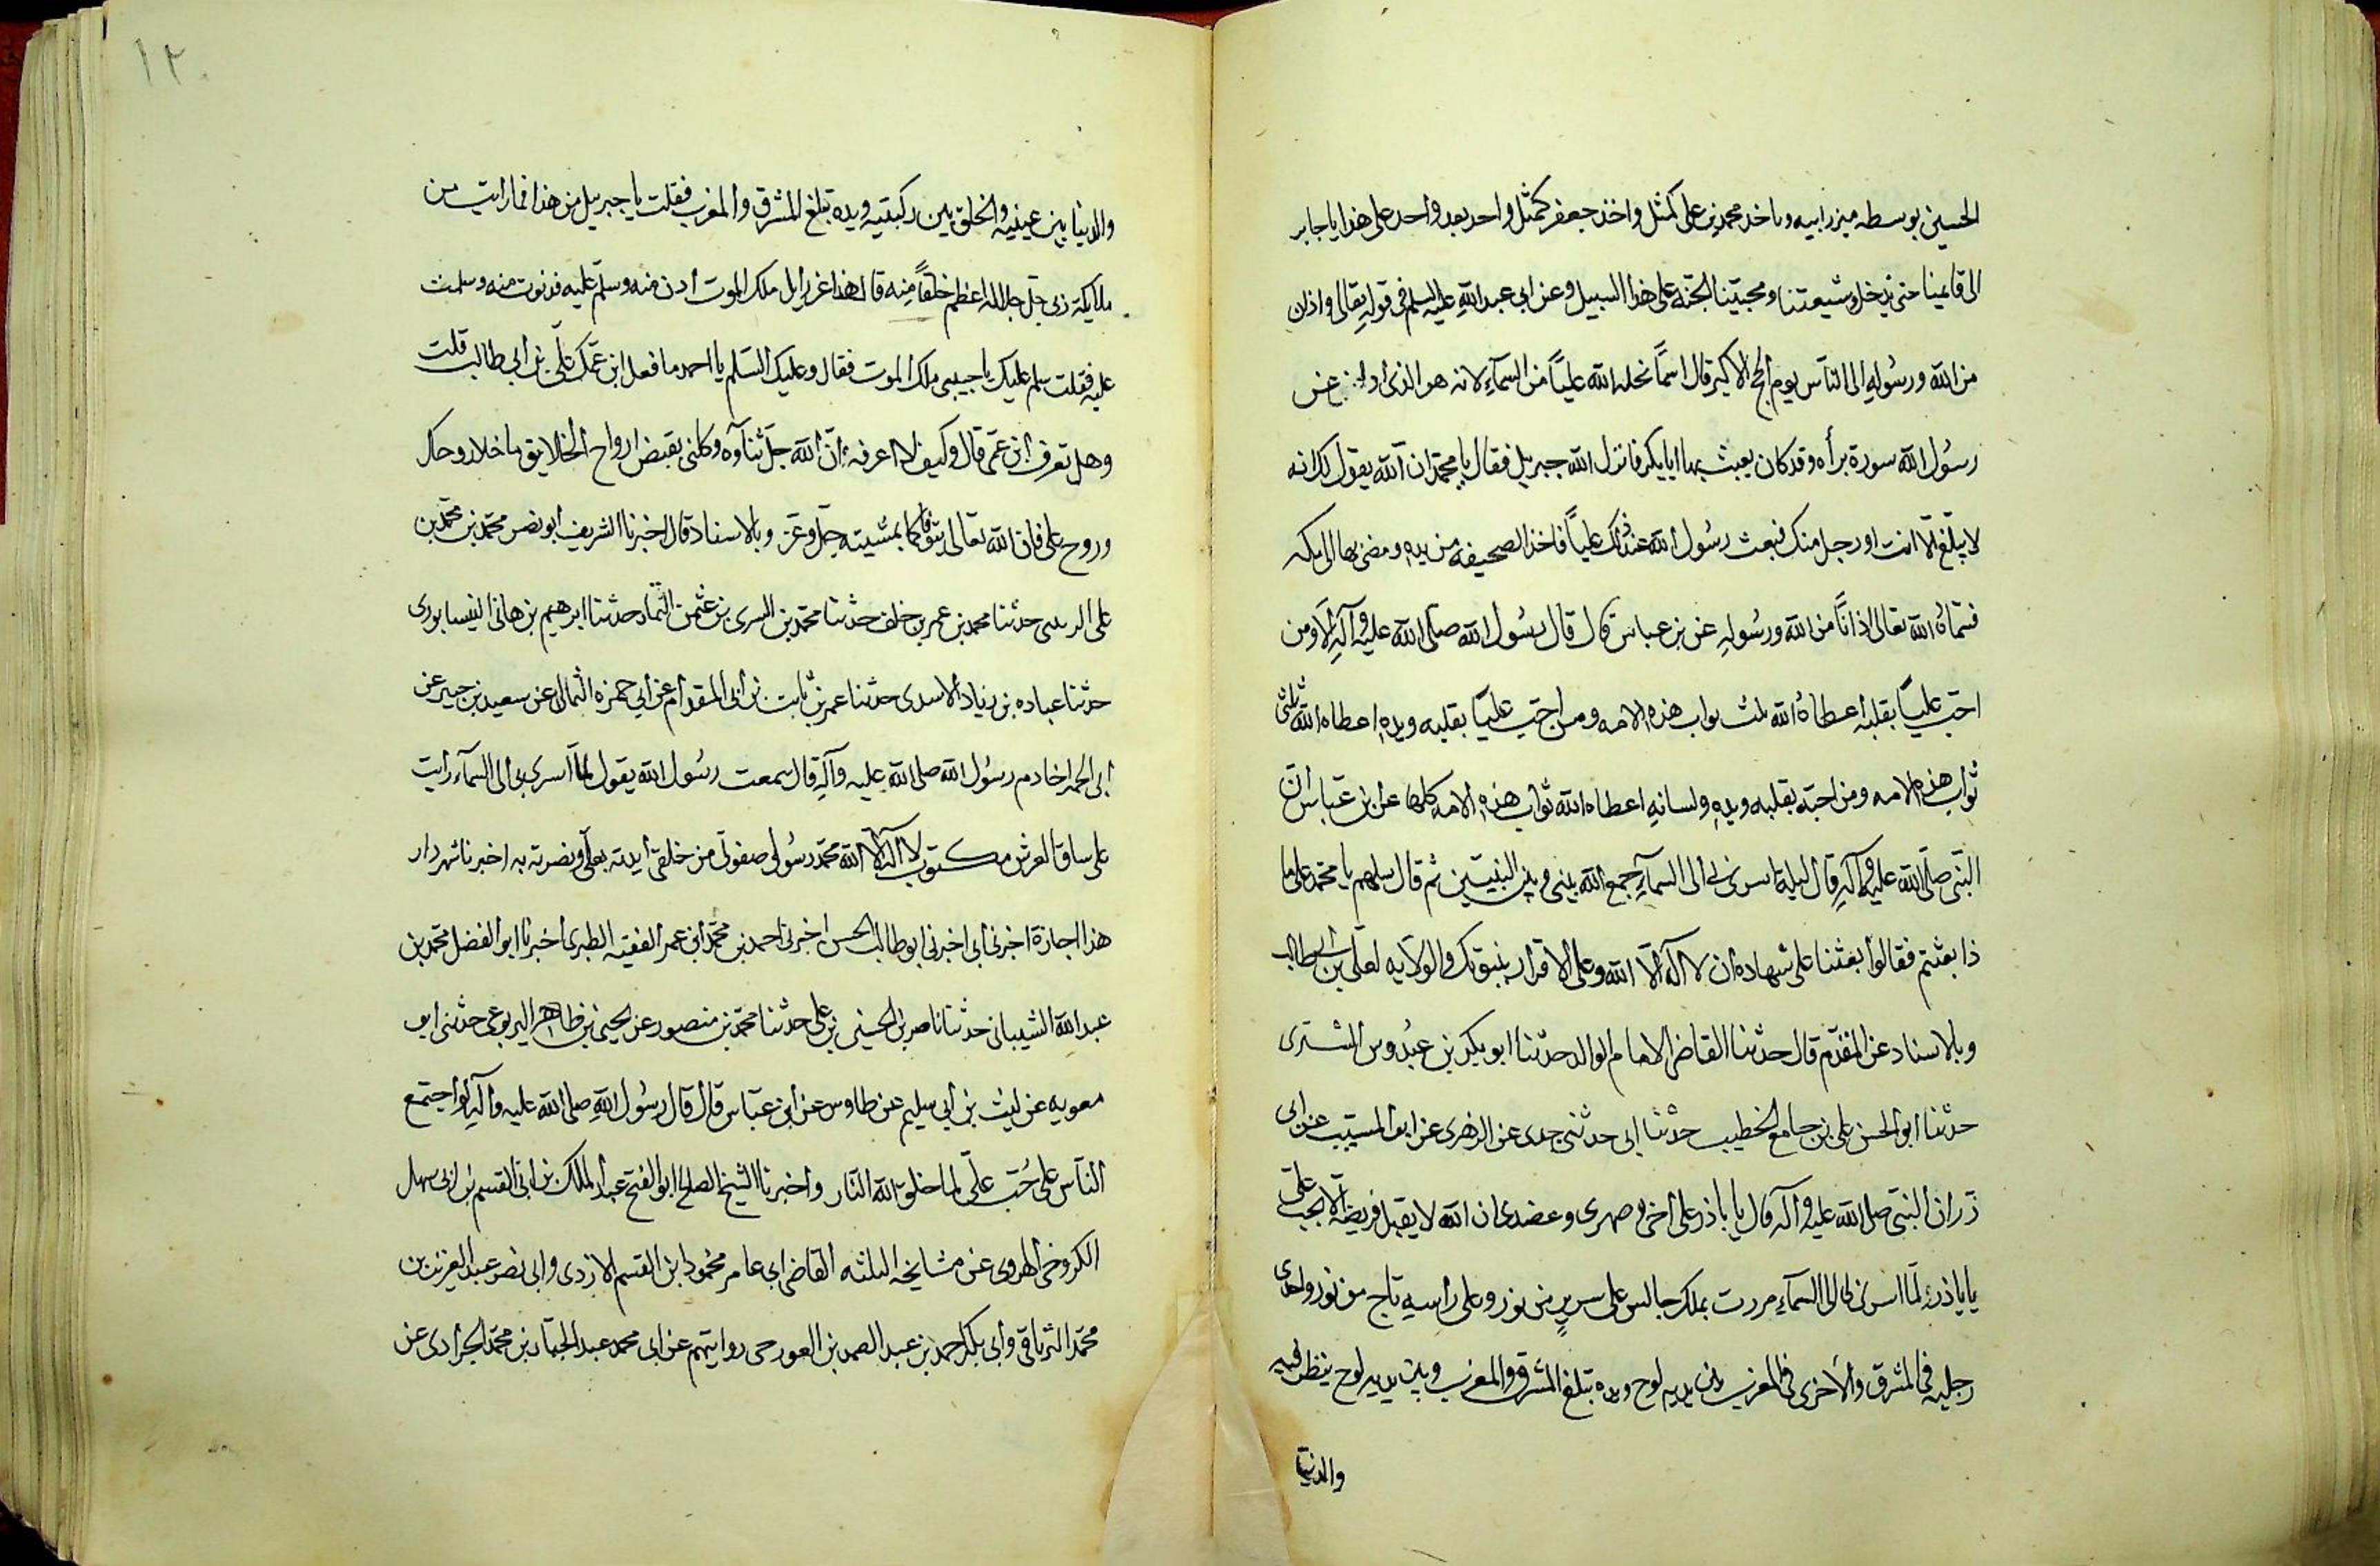 الحسين بوسطه ميزر ابيه وياخد محمد بن علي كمثل واخذ جعفر كمثل واحد بعد واحد على هذا يا جابر
الى قائمينا حتى ندخل شيعتنا ومحبينا الجنة على هذا السبيل وعن ابي عبد الله عليه السلم في قوله تعالى واذان
من الله ورسوله الى الناس يوم الحج الاكبر قال اسماً نحله الله علياً من السماء لانه هو الذي ادا عن
رسول الله سورة براه وقد كان يبعث بها ابا بكر فانزل الله جبريل فقال يا محمد ان الله يقول لك انه
لا يبلغ الا انت او رجل منك فبعث رسول الله عند ذلك علياً فاخذ الصحيفه من يده ومضى بها الى مكه
فسماه الله تعالى اذاناً من الله ورسوله عن بن عباس قال قال رسول الله صلى الله عليه وآله الا ومن
احب علياً بقلبه اعطاه الله ثلث ثواب هذه الامه ومن احب علياً بقلبه ويده اعطاه الله ثلثي
ثواب هذه الامه ومن احبه بقلبه ويده ولسانه اعطاه الله ثواب هذه الامه كلها عن بن عباس ان
النبي صلى الله عليه وآله قال ليلة اسرى بي الى السماء جمع الله بيني وبين النبيين ثم قال سلهم يا محمد على ما
ذا بعثتم فقالوا بعثنا على شهاده ان لا اله الا الله وعلى الاقرار بنبوتك والولايه لعلي بن ابي طالب
وبالاسناد عن المقدم قال حدثنا القاضي الامام الوالد حدثنا ابو بكر بن عبدوس الششترى
حدثنا ابو الحسن علي بن جامع الخطيب حدثنا ابي حدثني جدى عن الزهرى عن ابن المسيب عن ابى
ذر ان النبي صلى الله عليه وآله قال يا با ذر علي اخي وصهرى وعضدى ان الله لا يقبل فريضة الا بحب علي
يا با ذر لما اسرى بي الى السماء مررت بملك جالس على سرير من نور وعلى راسه تاج من نور واحدى
رجليه في المشرق والاخرى في المغرب بين يديه لوح ويده تبلغ المشرق والمغرب وبين يديه لوح ينظر فيه
والدنيا
١٢٠
والدنيا بين عينيه والخلق بين ركبتيه ويده تبلغ المشرق والمغرب فقلت يا جبريل من هذا فما رايت من
ملايكة ربى جل جلاله اعظم خلقاً منه قال هذا عزرايل ملك الموت ادن منه وسلم عليه فدنوت منه وسلمت
عليه فقلت سلم عليك يا حبيبى ملك الموت فقال وعليك السلم يا احمد ما فعل ابن عمك علي بن ابي طالب قلت
وهل تعرف ابن عمى قال وكيف لا اعرفه ان الله جل ثناؤه وكلنى بقبض ارواح الخلايق ما خلا روحك
وروح علي فان الله تعالى يتوفاكما بمشيته جل وعز وبالاسناد قال اخبرنا الشريف ابو نصر محمد بن محمد بن
على حدثنا محمد بن عمر بن خلف حدثنا محمد بن السرى بن عثمن التمار حدثنا ابرهيم بن هانى النيسابورى
حدثنا عباده بن زياد الاسدى حدثنا عمر بن ثابت بن ابي المقدام عن ابي حمزه الثمالى عن سعيد بن جبير عن
ابى الحمرا خادم رسول الله صلى الله عليه وآله قال سمعت رسول الله يقول لما اسرى بى الى السماء رايت
على ساق العرش مكتوب لا اله الا الله محمد رسولي صفوتي من خلقي ايدته بعلي ونصرته به اخبرنا شهردار
هذا اجازة اخبرنى ابى اخبرنى ابو طالب الحسن اخبرنى احمد بن محمد ابن عمر الفقيه الطبرى اخبرنا ابو الفضل محمد بن
عبد الله الشيبانى حدثنا ناصر بن الحسين بن علي حدثنا محمد بن منصور عن يحيى بن طاهر اليربوعى حدثنى ابو
معويه عن ليث بن ابي سليم عن طاوس عن ابن عباس قال قال رسول الله صلى الله عليه وآله لو اجتمع
الناس على حب علي لما خلق الله النار واخبرنا الشيخ الصالح ابو الفتح عبد الملك بن ابي القسم بن ابى سهل
الكروخى الهروى عن مشايخه الثلثه القاضي ابى عامر محمود ابن القسم الازدى وابى نصر عبد العزيز بن
محمد الترياقى وابى بكر احمد بن عبد الصمد بن الغورجى روايتهم عن ابى محمد عبد الجبار بن محمد الجراحى عن